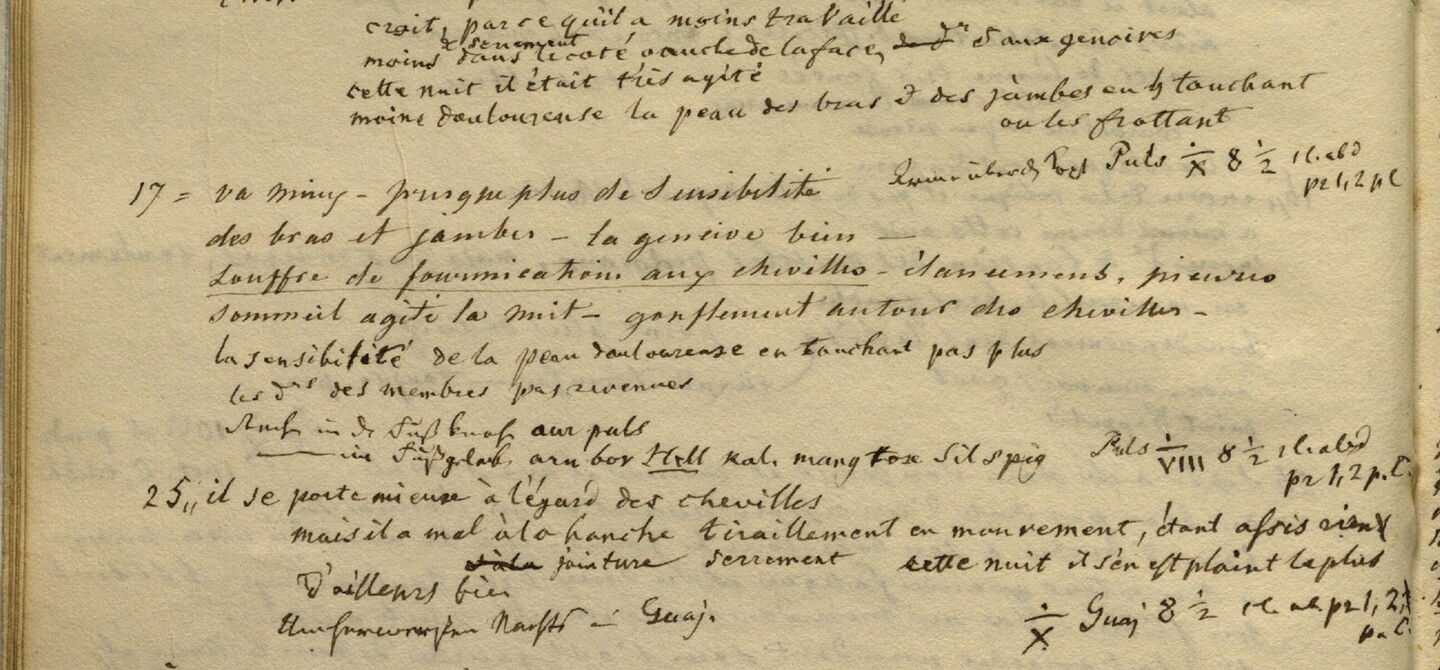 croit, parce qu'il a moins travaillé
& serrement
moins dans le coté gauche de la face, d aux gencives
cette nuit il était très agité
moins douloureuse la peau des bras & des jambes en y touchant
ou les frottant
Puls ÷/X 8 ½ abd
pr 1, 2 p C
17 = va mieux – presque plus de sensibilité
des bras et jambes – la gencive bien –
souffre de fourmication aux chevilles – élancemens,
sommeil agité la nuit – gonflement autour des chevilles –
la sensibilité de la peau douloureuse en touchant pas plus
les d^rs des membres pas revenues
in d Fuß aur puls
im Fußgelenk arn bor Hell kal. mang tox Sil spig Puls ÷/VIII 8 ½ abd
pr 1, 2 p. C.
25,, il se porte mieux à l'égard des chevilles
mais il a mal à la hanche tiraillement en mouvement, étant assis rien
jointure serrement cette nuit il s'en est plaint le plus
D'ailleurs bien
Nachts – Guaj.
÷/X Guaj 8 ½ ab pr 1, 2,
p. C.